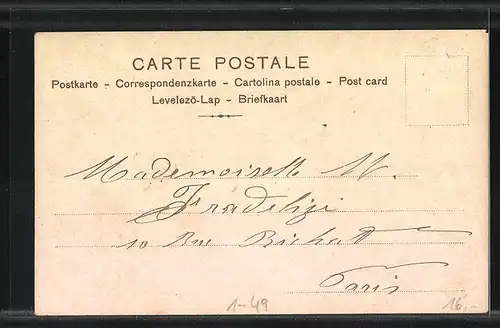 CARTE POSTALE
Postkarte - Correspondenzkarte - Cartolina postale - Post card
Levelezö-Lap - Briefkaart
Mademoiselle W.
Fradelizi
10 Rue Bichat
Paris
1-49 16.-